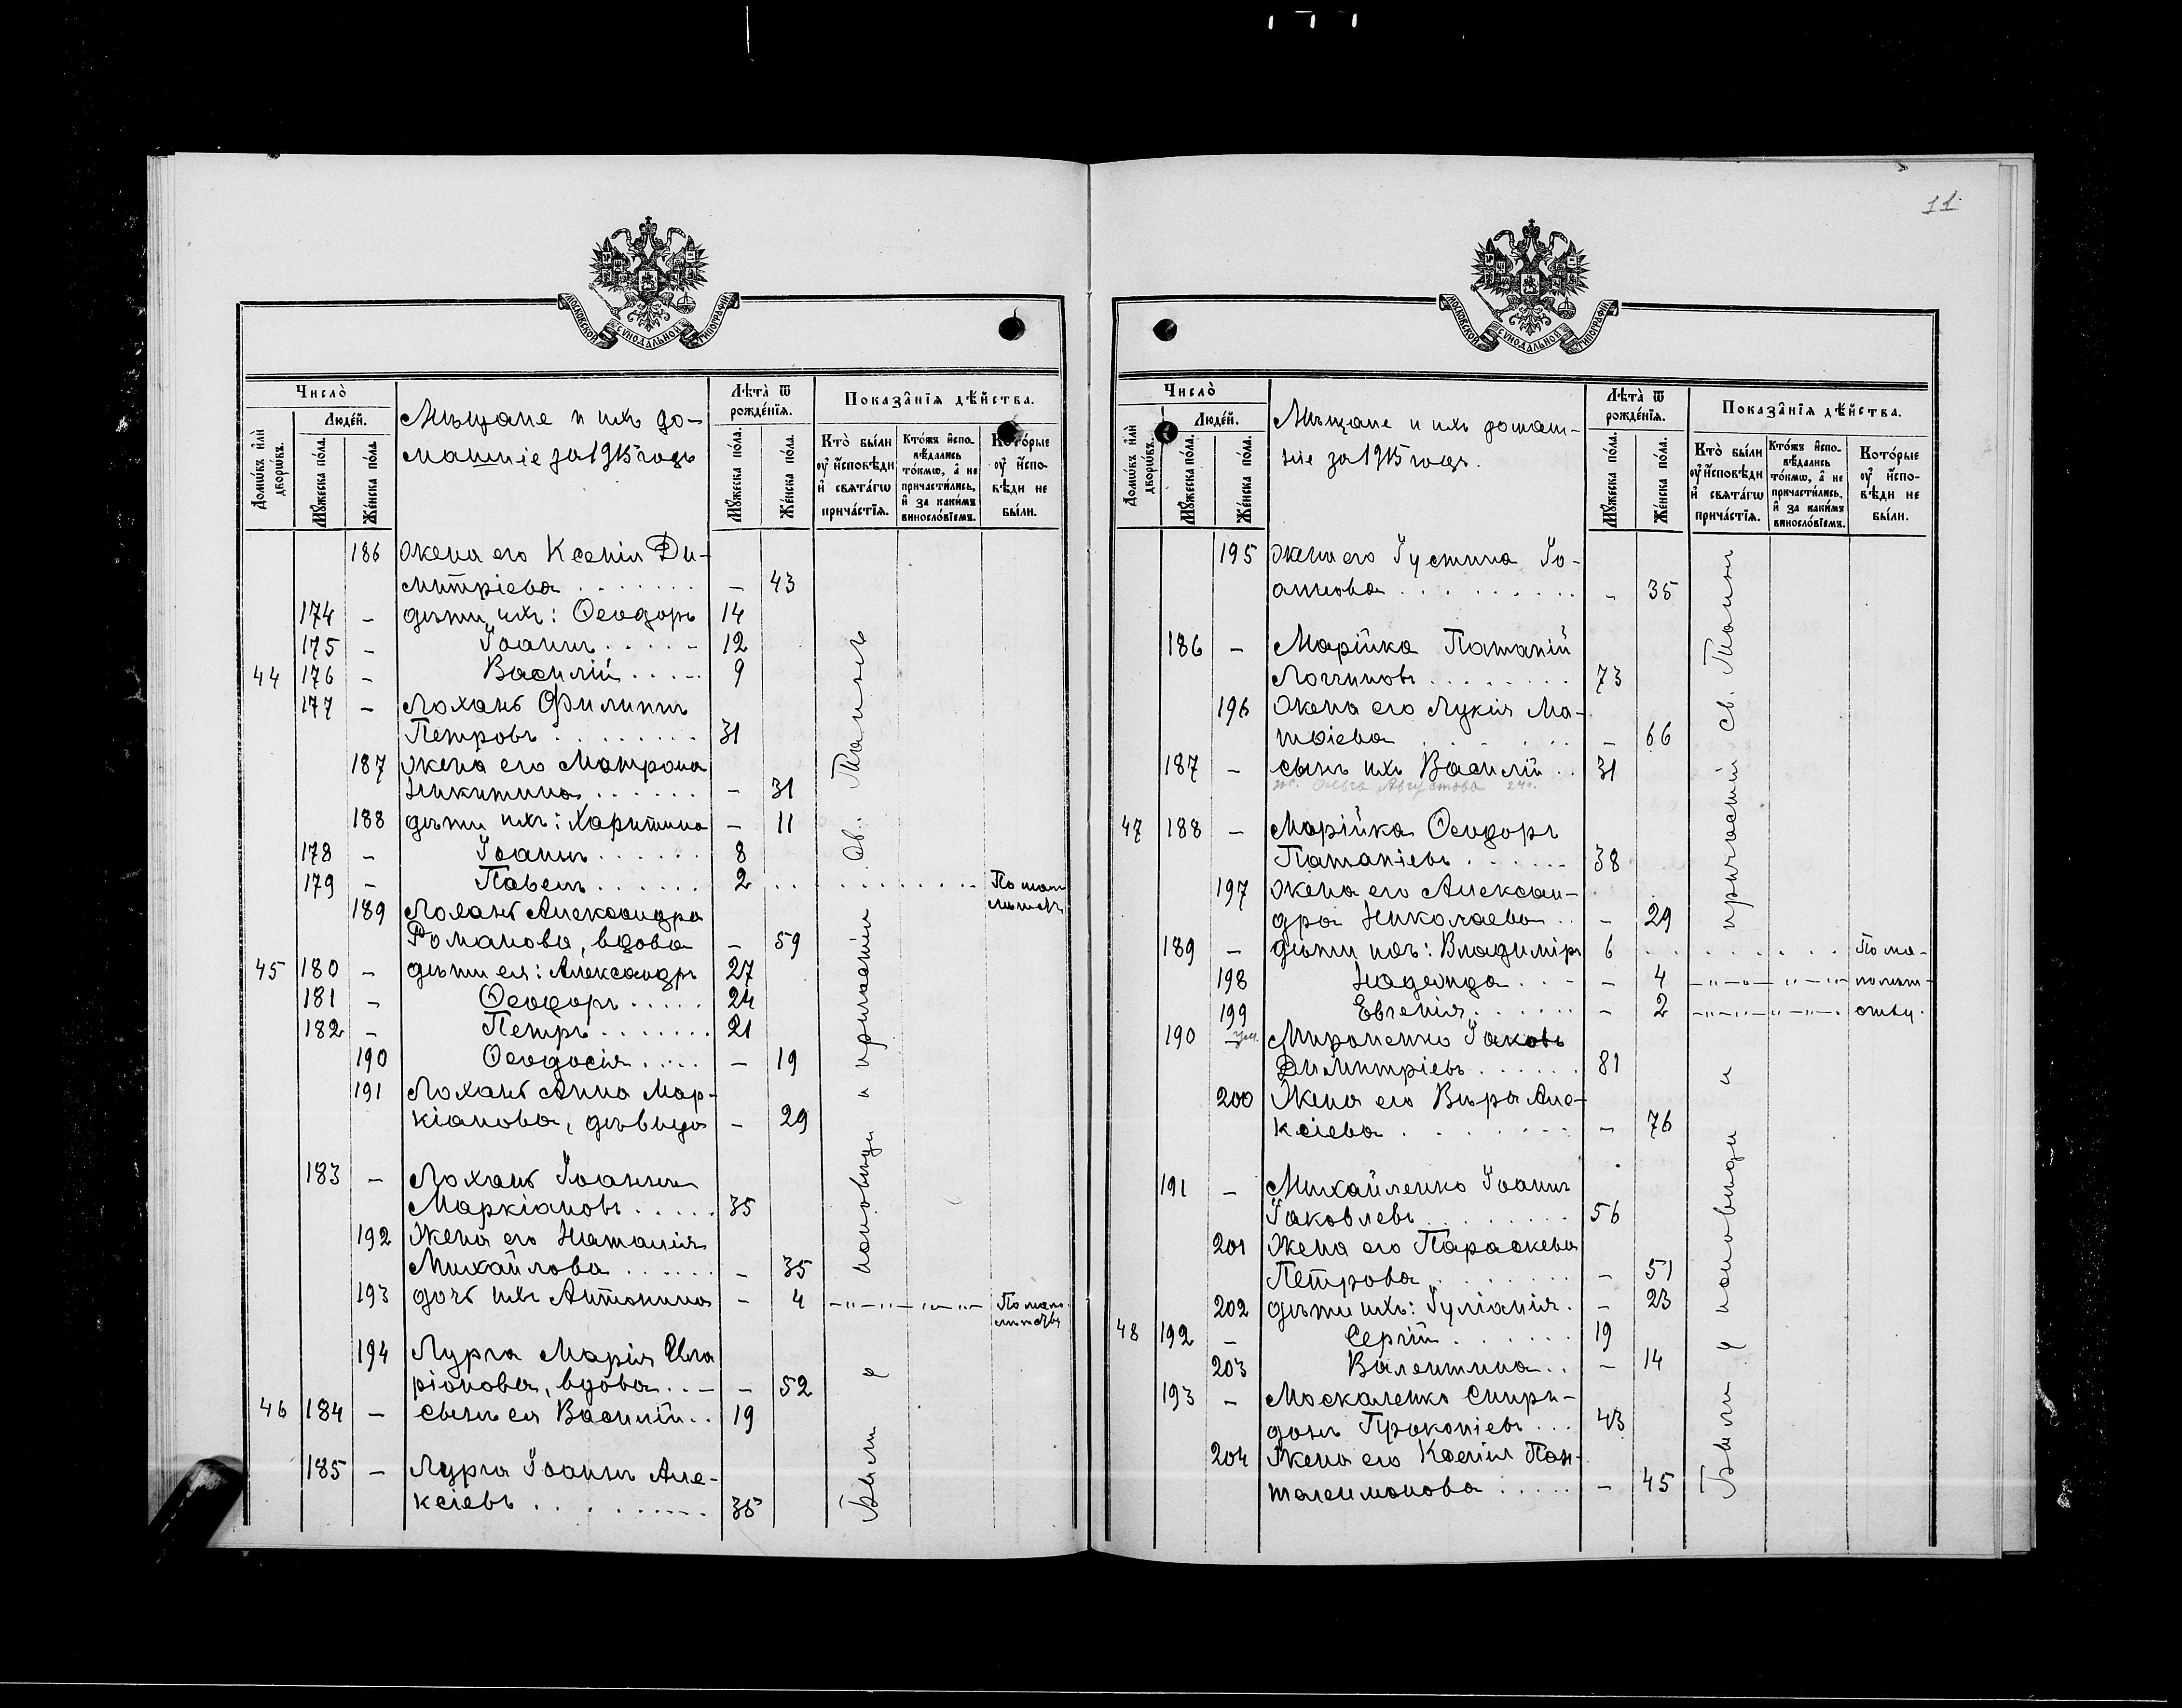 11.
МОСКОВСКОЙ СѴНОДАЛЬНОЙ ТИПОГРАФІИ
Число̀
Людéй.
Домѡ́въ и҆лѝ дворѡ́въ.
Мꙋ́жеска по́ла.
Же́нска по́ла.
Мѣщане и ихъ до-
машніе за 1915 годъ
Лѣта̀ ѿ рожде́нїѧ.
Мꙋ́жеска по́ла.
Же́нска по́ла.
Показа̑нїѧ дѣ́йства.
Кто̀ бы́ли ᲂу҆ и҆сповѣ́ди и҆ свѧта́гѡ прича́стїѧ.
Кто́жъ и҆спо-вѣ́дались то́кмѡ, а҆ не причасти́лись, и҆ за каки́мъ винослові́емъ.
Кото́рые ᲂу҆ и҆спо-вѣ́ди не бы́ли.
186 жена его Ксенія Ди-
митріева . . . . . . . – 43
174 – дѣти ихъ: Ѳеодоръ 14
175 – Іоаннъ . . . . – 12
44 176 – Василій . . . . 9
177 – Лоханъ Филиппъ
Петровъ . . . . . . . . 31
187 жена его Матрона
Никитина . . . . . . – 31
188 дѣти ихъ: Харитина – 11
178 – Іоаннъ . . . . . . 8
179 – Павелъ . . . . . . 2 . . . . . . . . . . . По мал
лѣтств
189 Лоханъ Александра
Романова, вдова – 59
45 180 – дѣти ея: Александръ 27
181 – Ѳеодоръ . . . . . 24
182 – Петръ . . . . . . . 21
190 Ѳеодосія . . . . – 19
191 Лоханъ Анна Мар-
кіанова, дѣвица – 29
183 – Лоханъ Іоаннъ
Маркіановъ . . . . . 35
192 Жена его Наталія
Михайлова . . . . . . – 35
193 дочь ихъ Антонина – 4 – " – " – " – " – По мало
лѣтств
194 Лурга Марія Ила
ріонова, вдова . . – – 52
46 184 – сынъ ея Василій . . 19
185 – Лурга Іоаннъ Але-
ксіевъ . . . . . . . . . 35
Были у исповѣди и причастія Св. Таинъ
МОСКОВСКОЙ СѴНОДАЛЬНОЙ ТИПОГРАФІИ
Число̀
Людéй.
Домѡ́въ и҆лѝ дворѡ́въ.
Мꙋ́жеска по́ла.
Же́нска по́ла.
Мѣщане и ихъ домаш-
ніе за 1915 годъ.
Лѣта̀ ѿ рожде́нїѧ.
Мꙋ́жеска по́ла.
Же́нска по́ла.
Показа̑нїѧ дѣ́йства.
Кто̀ бы́ли ᲂу҆ и҆сповѣ́ди и҆ свѧта́гѡ прича́стїѧ.
Кто́жъ и҆спо-вѣ́дались то́кмѡ, а҆ не причасти́лись, и҆ за каки́мъ винослові́емъ.
Кото́рые ᲂу҆ и҆спо-вѣ́ди не бы́ли.
195 жена его Іустина Іо-
аннова . . . . . . . . . . – 35
186 – Марійка Патапій
Логгиновъ . . . . . . . . 73
196 Жена его Лукія Ма-
тѳіева . . . . . . . – 66
187 – сынъ ихъ Василій . . 31
ж. Ольга Августова 24 г.
47 188 – Марійка Ѳеодоръ
Патапіевъ . . . . . . 38
197 жена его Алексан-
дра Николаева . . – 29
189 – дѣти ихъ: Владиміръ 6 . . . . . . . По ма-
198 Надежда . . – – 4 – " – " – " – " – лолѣт-
199 Евгенія . . . . . . – 2 – " – " – " – " – ству.
190 ум. Мироненко Іаковъ
Димитріевъ . . . . . . 81
200 Жена его Вѣра Але-
ксіева . . . . . . . . – 76
191 – Михайленко Іоаннъ
Іаковлевъ . . . . . . . . 56
201 Жена его Параскева
Петрова . . . . . . . . – 51
202 дѣти ихъ: Іуліанія . – 23
48 192 – Сергій . . . . . . . 19
203 Валентина . . – 14
193 – Москаленко Спири-
донъ Прокопіевъ . . . 43
204 Жена его Ксенія Пан-
телеимонова . . . . . – 45
Были у исповѣди и причастія Св. Таинъ